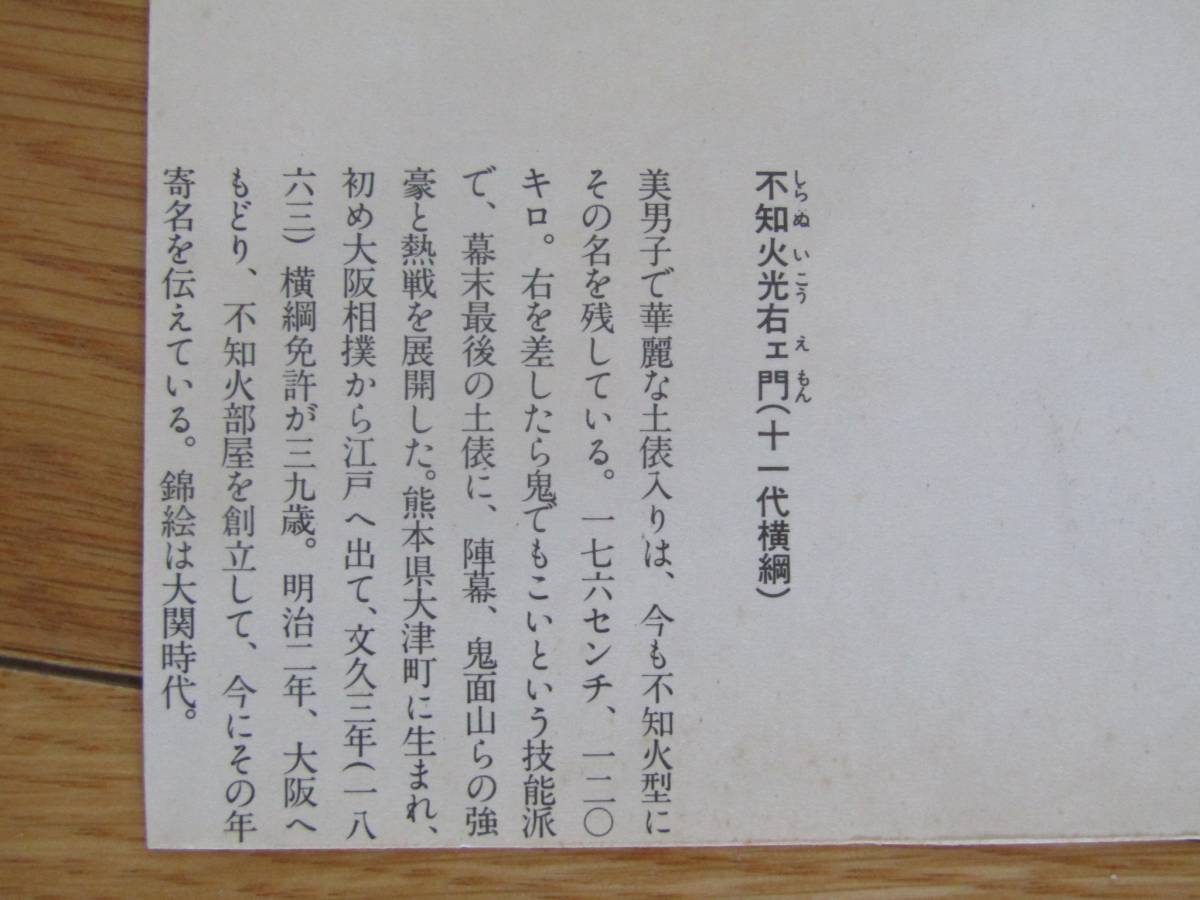 不知火光右ェ門(十一代横綱)
しらぬいこうえもん
美男子で華麗な土俵入りは、今も不知火型に
その名を残している。一七六センチ、一二〇
キロ。右を差したら鬼でもこいという技能派
で、幕末最後の土俵に、陣幕、鬼面山らの強
豪と熱戦を展開した。熊本県大津町に生まれ、
初め大阪相撲から江戸へ出て、文久三年(一八
六三)横綱免許が三九歳。明治二年、大阪へ
もどり、不知火部屋を創立して、今にその年
寄名を伝えている。錦絵は大関時代。